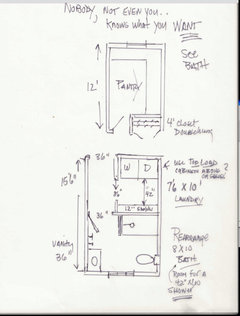 NOBODY, NOT EVEN YOU..
KNOWS WHAT YOU WANT
SEE
BATH
12'
PANTRY
4' closet
36"
W D
WILL THE LOAD
7'6 X 10'
LAUNDRY
15'6"
36"
42"
12" SHELVES
36"
vanity
36"
REARRANGE
8 X 10
BATH
ROOM FOR A
SHOWER